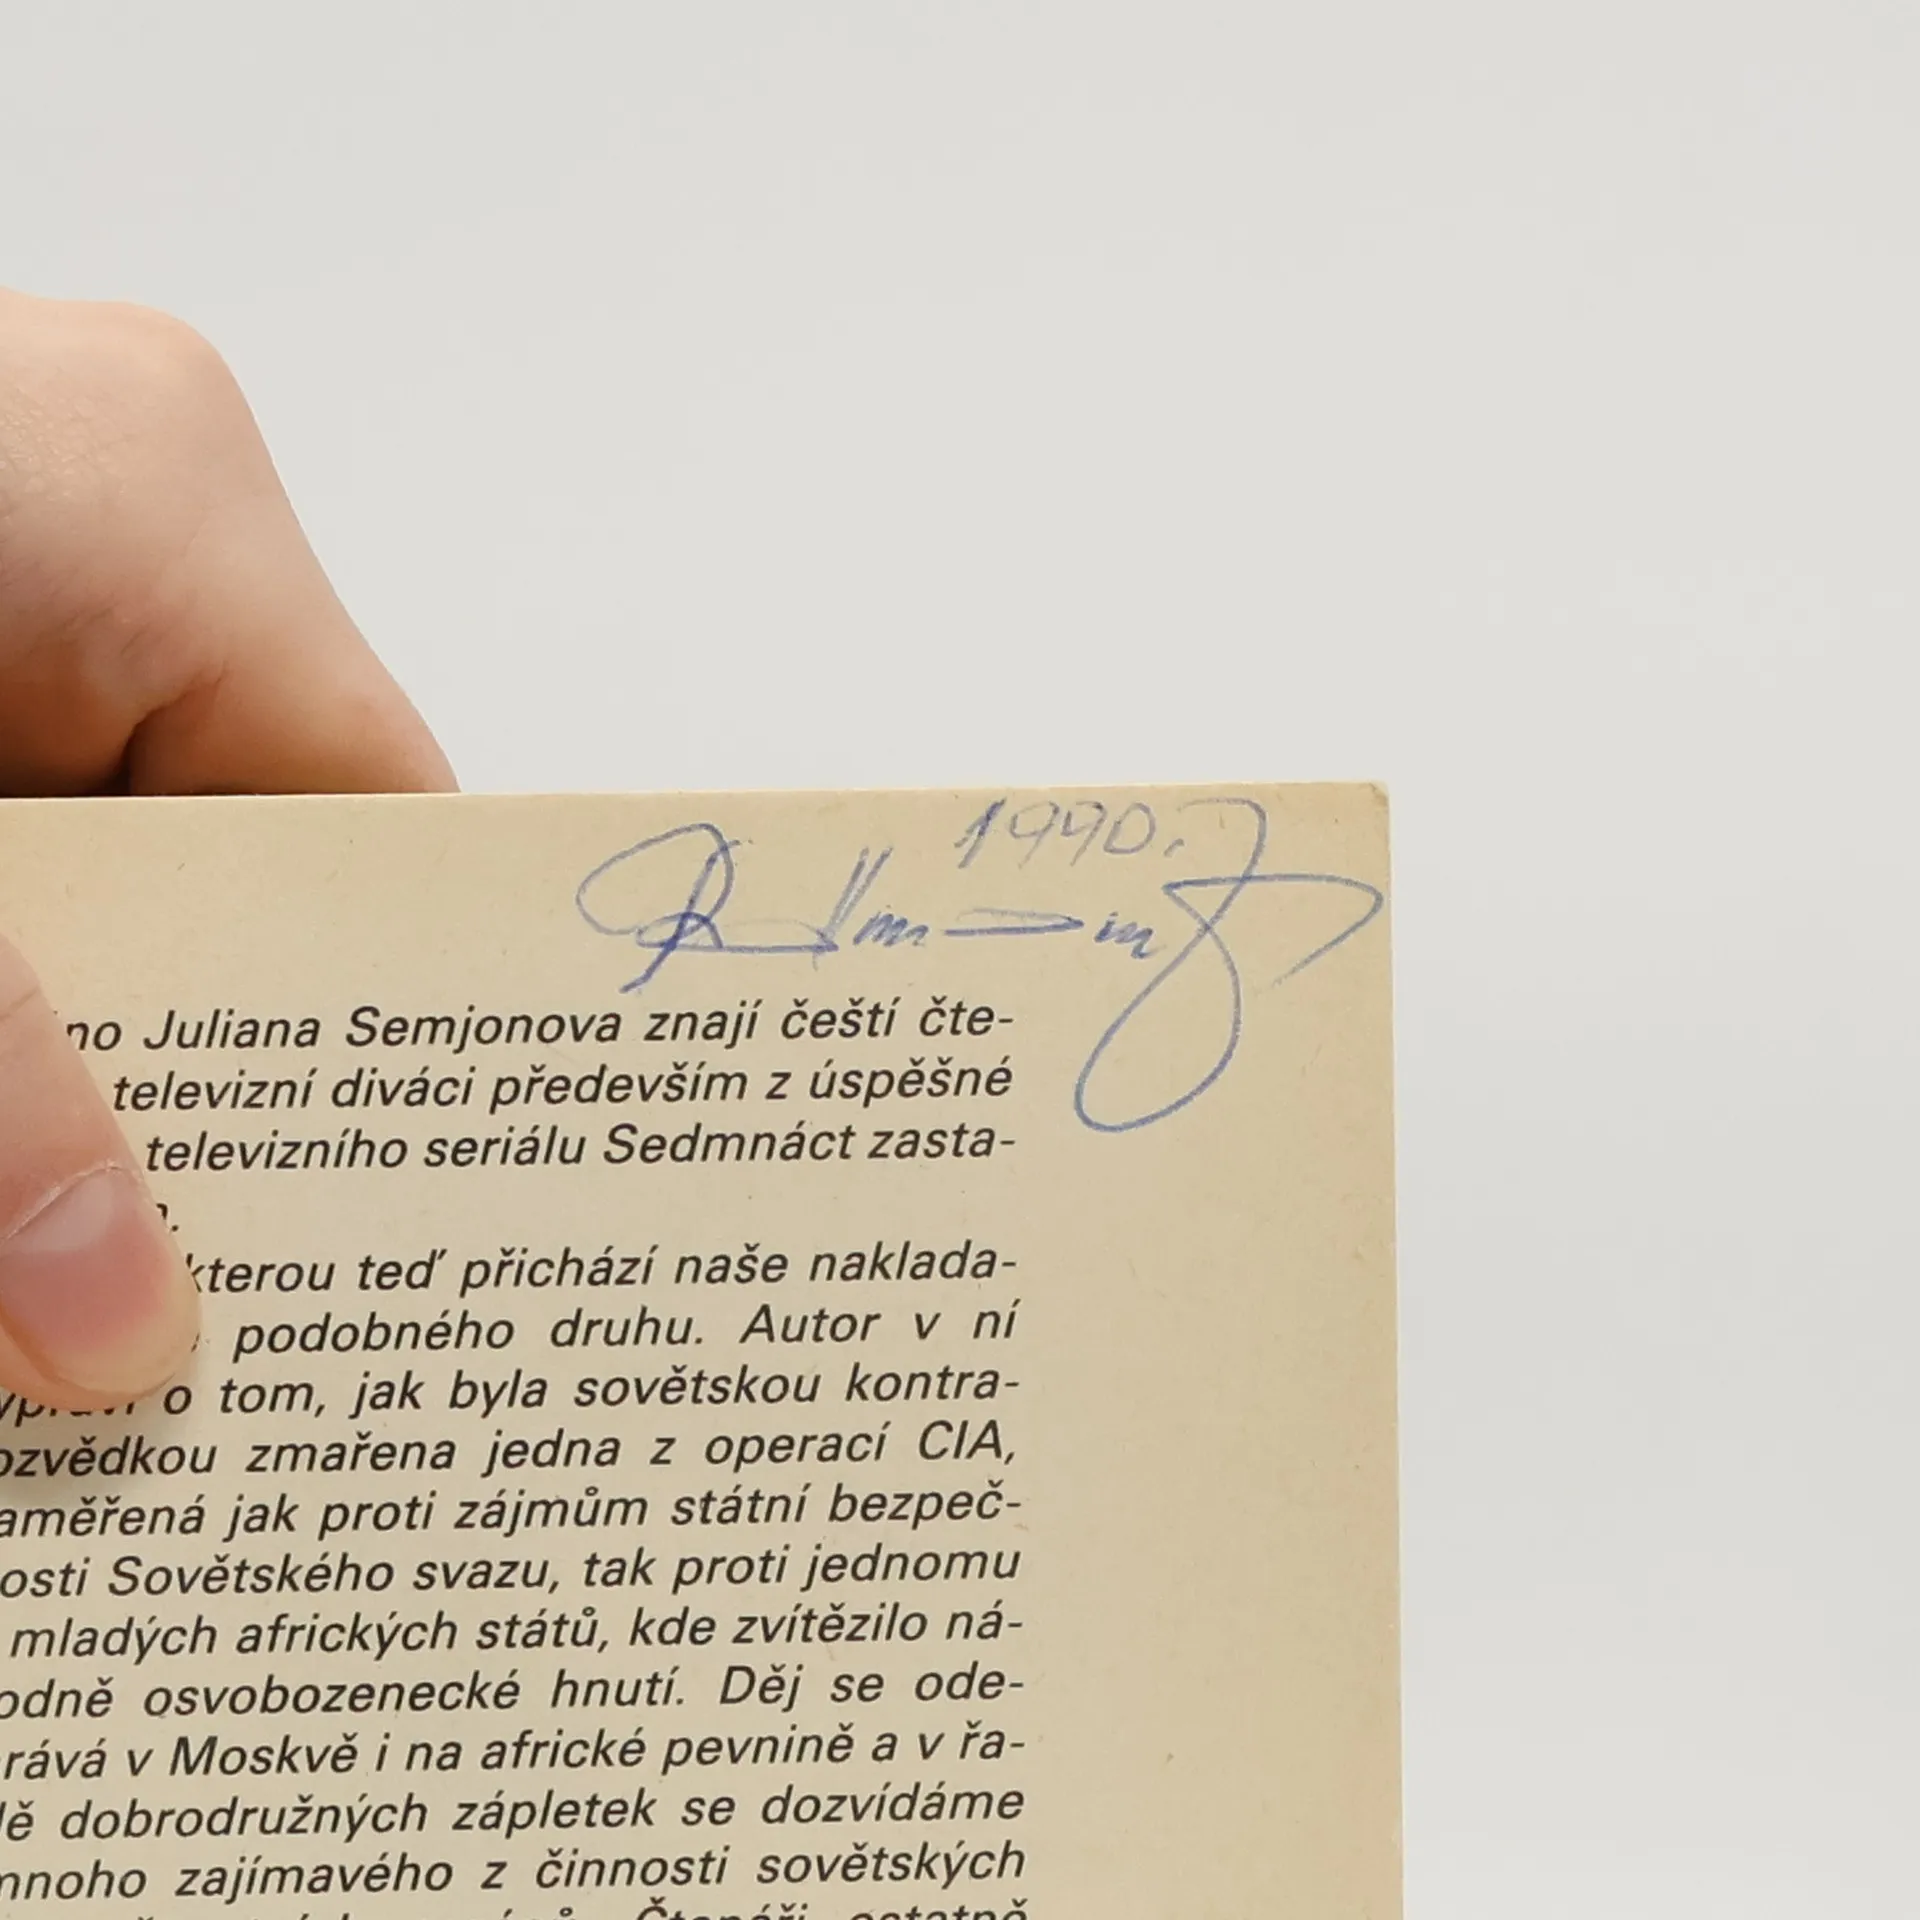 1990.
Juliana Semjonova znají čeští čte-
televizní diváci především z úspěšné
televizního seriálu Sedmnáct zasta-
kterou teď přichází naše naklada-
podobného druhu. Autor v ní
o tom, jak byla sovětskou kontra-
ozvědkou zmařena jedna z operací CIA,
aměřená jak proti zájmům státní bezpeč-
osti Sovětského svazu, tak proti jednomu
mladých afrických států, kde zvítězilo ná-
odně osvobozenecké hnutí. Děj se ode-
rává v Moskvě i na africké pevnině a v řa-
dobrodružných zápletek se dozvídáme
mnoho zajímavého z činnosti sovětských